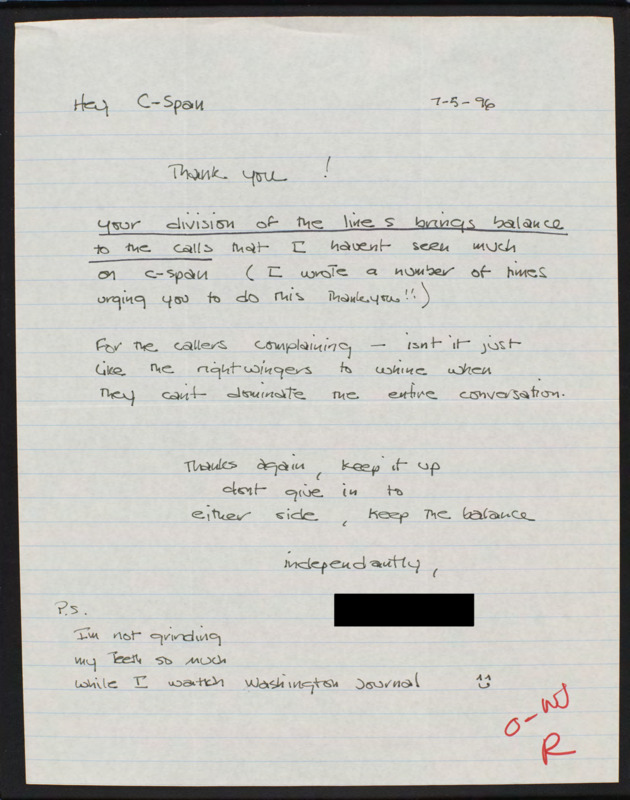 Hey C-Span 7-5-96
Thank you !
your division of the lines brings balance
to the calls that I havent seen much
on C-span ( I wrote a number of times
urging you to do this Thankyou!!)
For the callers complaining — isnt it just
like the rightwingers to whine when
they cant dominate the entire conversation.
Thanks again, keep it up
dont give in to
either side, keep the balance
independantly,
P.S.
I'm not grinding
my Teeth so much
while I waitch Washington Journal
O-WJ
R